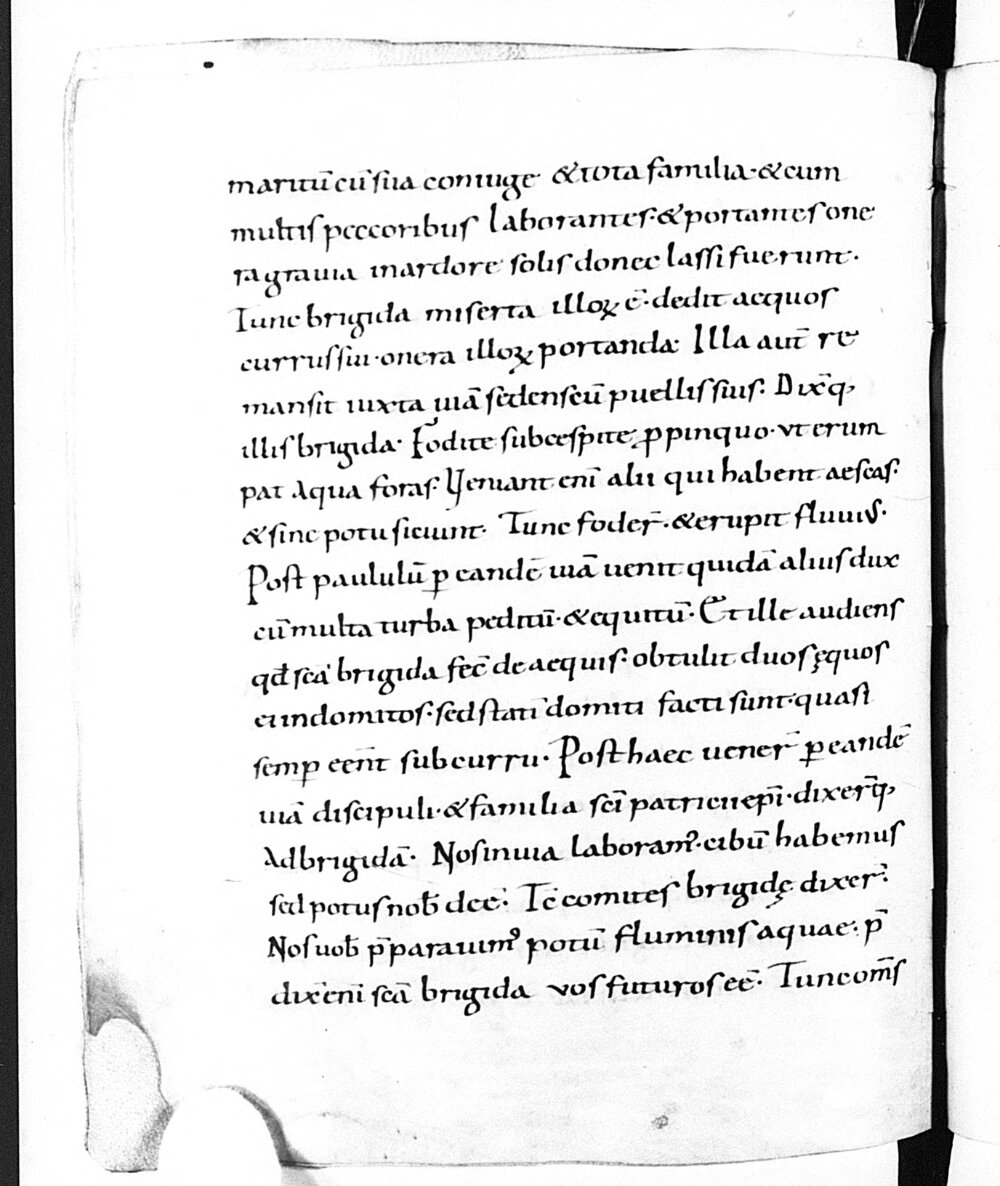 maritū cū sua coniuge & tota familia· & cum
multis peccoribus laborantes· & portantes one
ra grauia in ardore solis donec lassi fuerunt·
Tunc brigida miserta illoꝝ ē· dedit aequos
currus sui· onera illoꝝ portanda· Illa aut̄ re
mansit iuxta uiā sedens cū puellis suis· Dix̄q,
illis brigida· Fodite sub cespite ꝓpinquo· vt erum
pat Aqua foras· Veniant eni alii qui habent aescas·
& sine potu siciunt· Tunc foder̄· & erupit fluuiꝰ·
Post paululū ꝑ eandē uiā uenit quidā alius dux
cū multa turba peditū· & equitū· Et ille audiens
qd̄ sc̄a brigida fec̄ de aequis· obtulit duos ęquos
ei indomitos· sed stati domiti facti sunt· quasi
semꝑ eēnt sub curru· Post haec uener̄ ꝑ eandē
uiā discipuli· & familia sc̄i patricii ep̄i· dixer̄q,
Ad brigidā· Nos in uia laboramꝰ· cibū habemus
sed potus nob̄ deē· Tc̄ comites brigidę dixer̄·
Nos uob̄ p̄parauimꝰ potū fluminis aquae· p̄
dix̄ eni sc̄a brigida vos futuros eē· Tunc om̄s